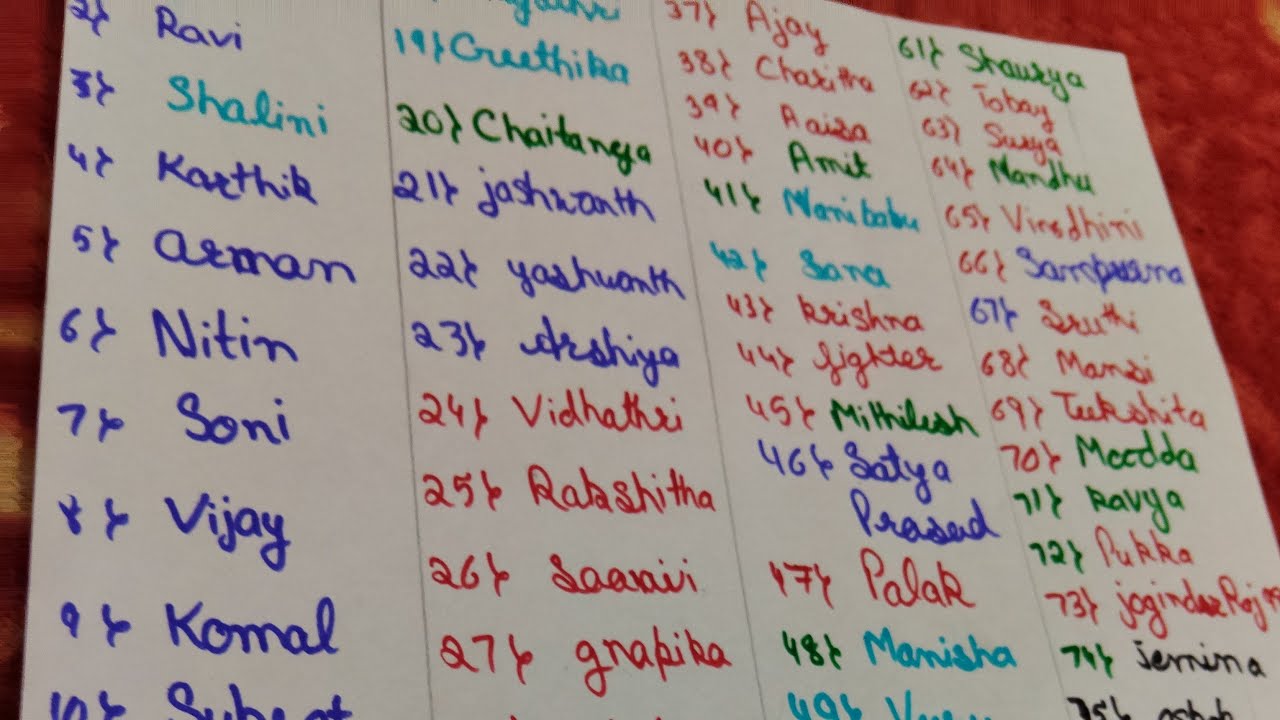 2} Ravi
3} Shalini
4} Karthik
5} Arman
6} Nitin
7} Soni
8} Vijay
9} Komal
10}
19} Greethika
20} Chaitanya
21} jashwanth
22} yashwanth
23} Arshiya
24} Vidhathri
25} Rakshitha
26} Saanvi
27} gnapika
37} Ajay
38} Charitha
39} Aaisa
40} Amit
41} Manibabu
42} Sana
43} krishna
44} fighter
45} Mithilesh
46} Satya
Prasad
47} Palak
48} Manisha
49}
61} Shaurya
62} Tobay
63} Surya
64} Nandhu
65} Virodhini
66}
67} Sruthi
68} Mansi
69} Teekshita
70} Mocdda
71} Kavya
72} Pukka
73}
74} Jemima
75}